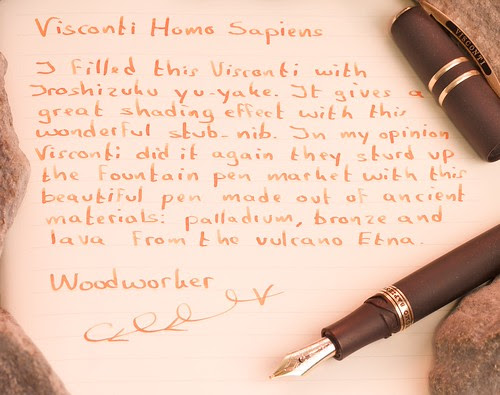 Visconti Homo Sapiens
I filled this Visconti with
Iroshizuku yu-yake. It gives a
great shading effect with this
wonderful stub-nib. In my opinion
Visconti did it again they sturd up
the fountain pen market with this
beautiful pen made out of ancient
materials: palladium, bronze and
lava from the vulcano Etna.
Woodworker
VISCONTI